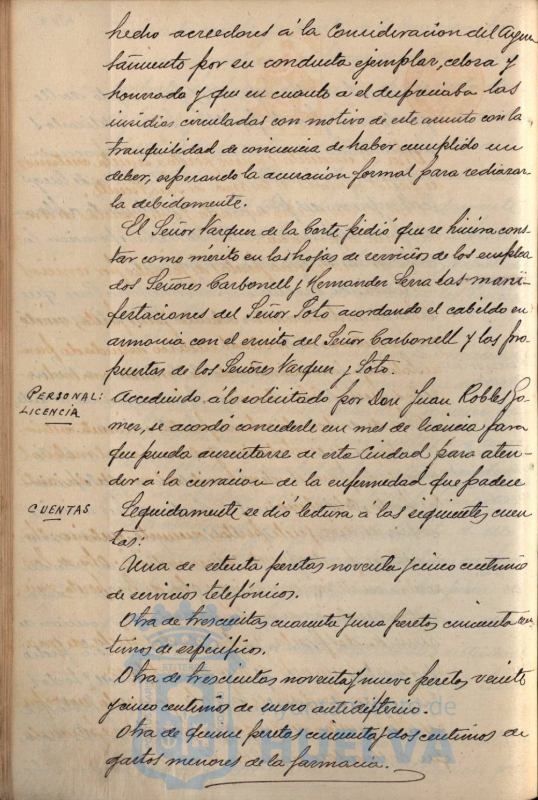 hecho acreedores á la Consideracion del Ayun
tamiento por su conducta ejemplar, celosa y
honrada y que en cuanto á el despreciaba las
insidias circuladas con motivo de este asunto con la
tranquilidad de conciencia de haber cumplido un
deber, esperando la acusacion formal para rechazar-
la debidamente.
El Señor Vazquez de la Corte pidió que se hiciera cons
tar como mérito en las hojas de servicios de los emplea
dos Señores Carbonell y Hernandez Serra las mani-
festaciones del Señor Soto acordando el cabildo en
armonia con el escrito del Señor Carbonell y las pro
puestas de los Señores Vazquez y Soto.
PERSONAL:
LICENCIA
Accediendo á lo solicitado por Don Juan Robles Go-
mez, se acordó concederle un mes de licencia para
que pueda ausentarse de esta Ciudad para aten-
der á la curacion de la enfermedad que padece
CUENTAS
Seguidamente se dió lectura á las siguientes cuen
tas:
Una de setenta pesetas noventa y cinco centimos
de servicios telefónicos.
Otra de trescientas cuarenta y una pesetas cincuenta cen-
timos de especificos.
Otra de trescientas noventa y nueve pesetas veinte
y cinco centimos de suero antidifterico.
Otra de quince pesetas cincuenta y dos centimos de
gastos menores de la farmacia.
Ayuntamiento de
HUELVA